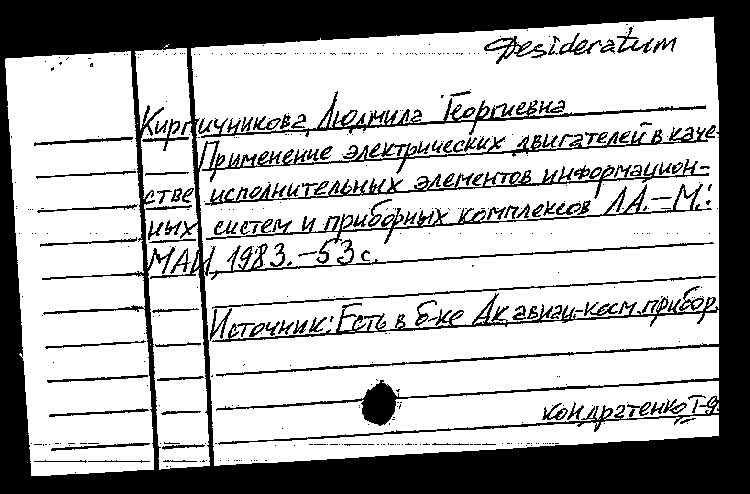 Desideratum
Кирпичникова, Людмила Георгиевна
Применение электрических двигателей в каче-
стве исполнительных элементов информацион-
ных систем и приборных комплексов ЛА. – М.:
МАИ, 1983. – 53 с.
Источник: Есть в б-ке Ак. авиац.-косм. прибор.
Кондратенко